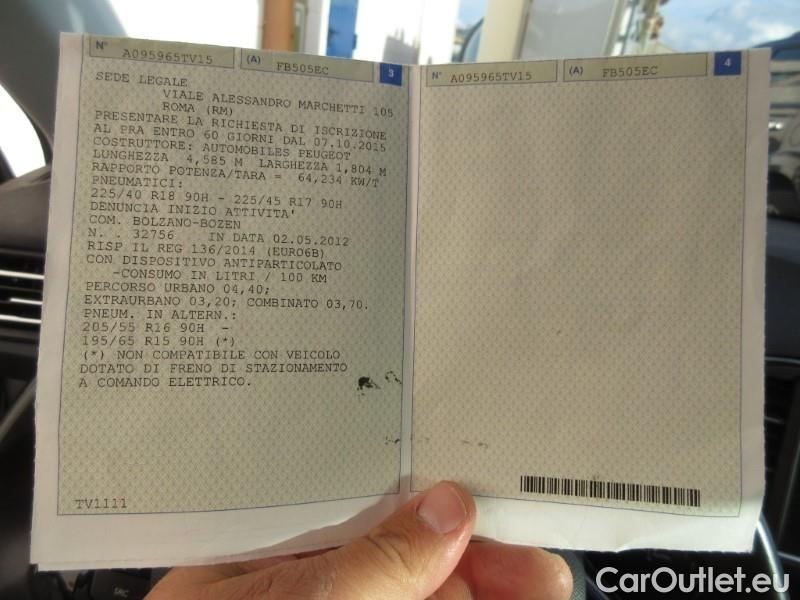 N° A095965TV15 (A) FB505EC 3
SEDE LEGALE
VIALE ALESSANDRO MARCHETTI 105
ROMA (RM)
PRESENTARE LA RICHIESTA DI ISCRIZIONE
AL PRA ENTRO 60 GIORNI DAL 07.10.2015
COSTRUTTORE: AUTOMOBILES PEUGEOT
LUNGHEZZA 4,585 M LARGHEZZA 1,804 M
RAPPORTO POTENZA/TARA = 64,234 KW/T
PNEUMATICI:
225/40 R18 90H - 225/45 R17 90H
DENUNCIA INIZIO ATTIVITA'
COM. BOLZANO-BOZEN
N. . 32756 IN DATA 02.05.2012
RISP IL REG 136/2014 (EURO6B)
CON DISPOSITIVO ANTIPARTICOLATO
-CONSUMO IN LITRI / 100 KM
PERCORSO URBANO 04,40;
EXTRAURBANO 03,20; COMBINATO 03,70.
PNEUM. IN ALTERN.:
205/55 R16 90H -
195/65 R15 90H (*)
(*) NON COMPATIBILE CON VEICOLO
DOTATO DI FRENO DI STAZIONAMENTO
A COMANDO ELETTRICO.
TV1111
N° A095965TV15 (A) FB505EC 4
SRC
CarOutlet.eu